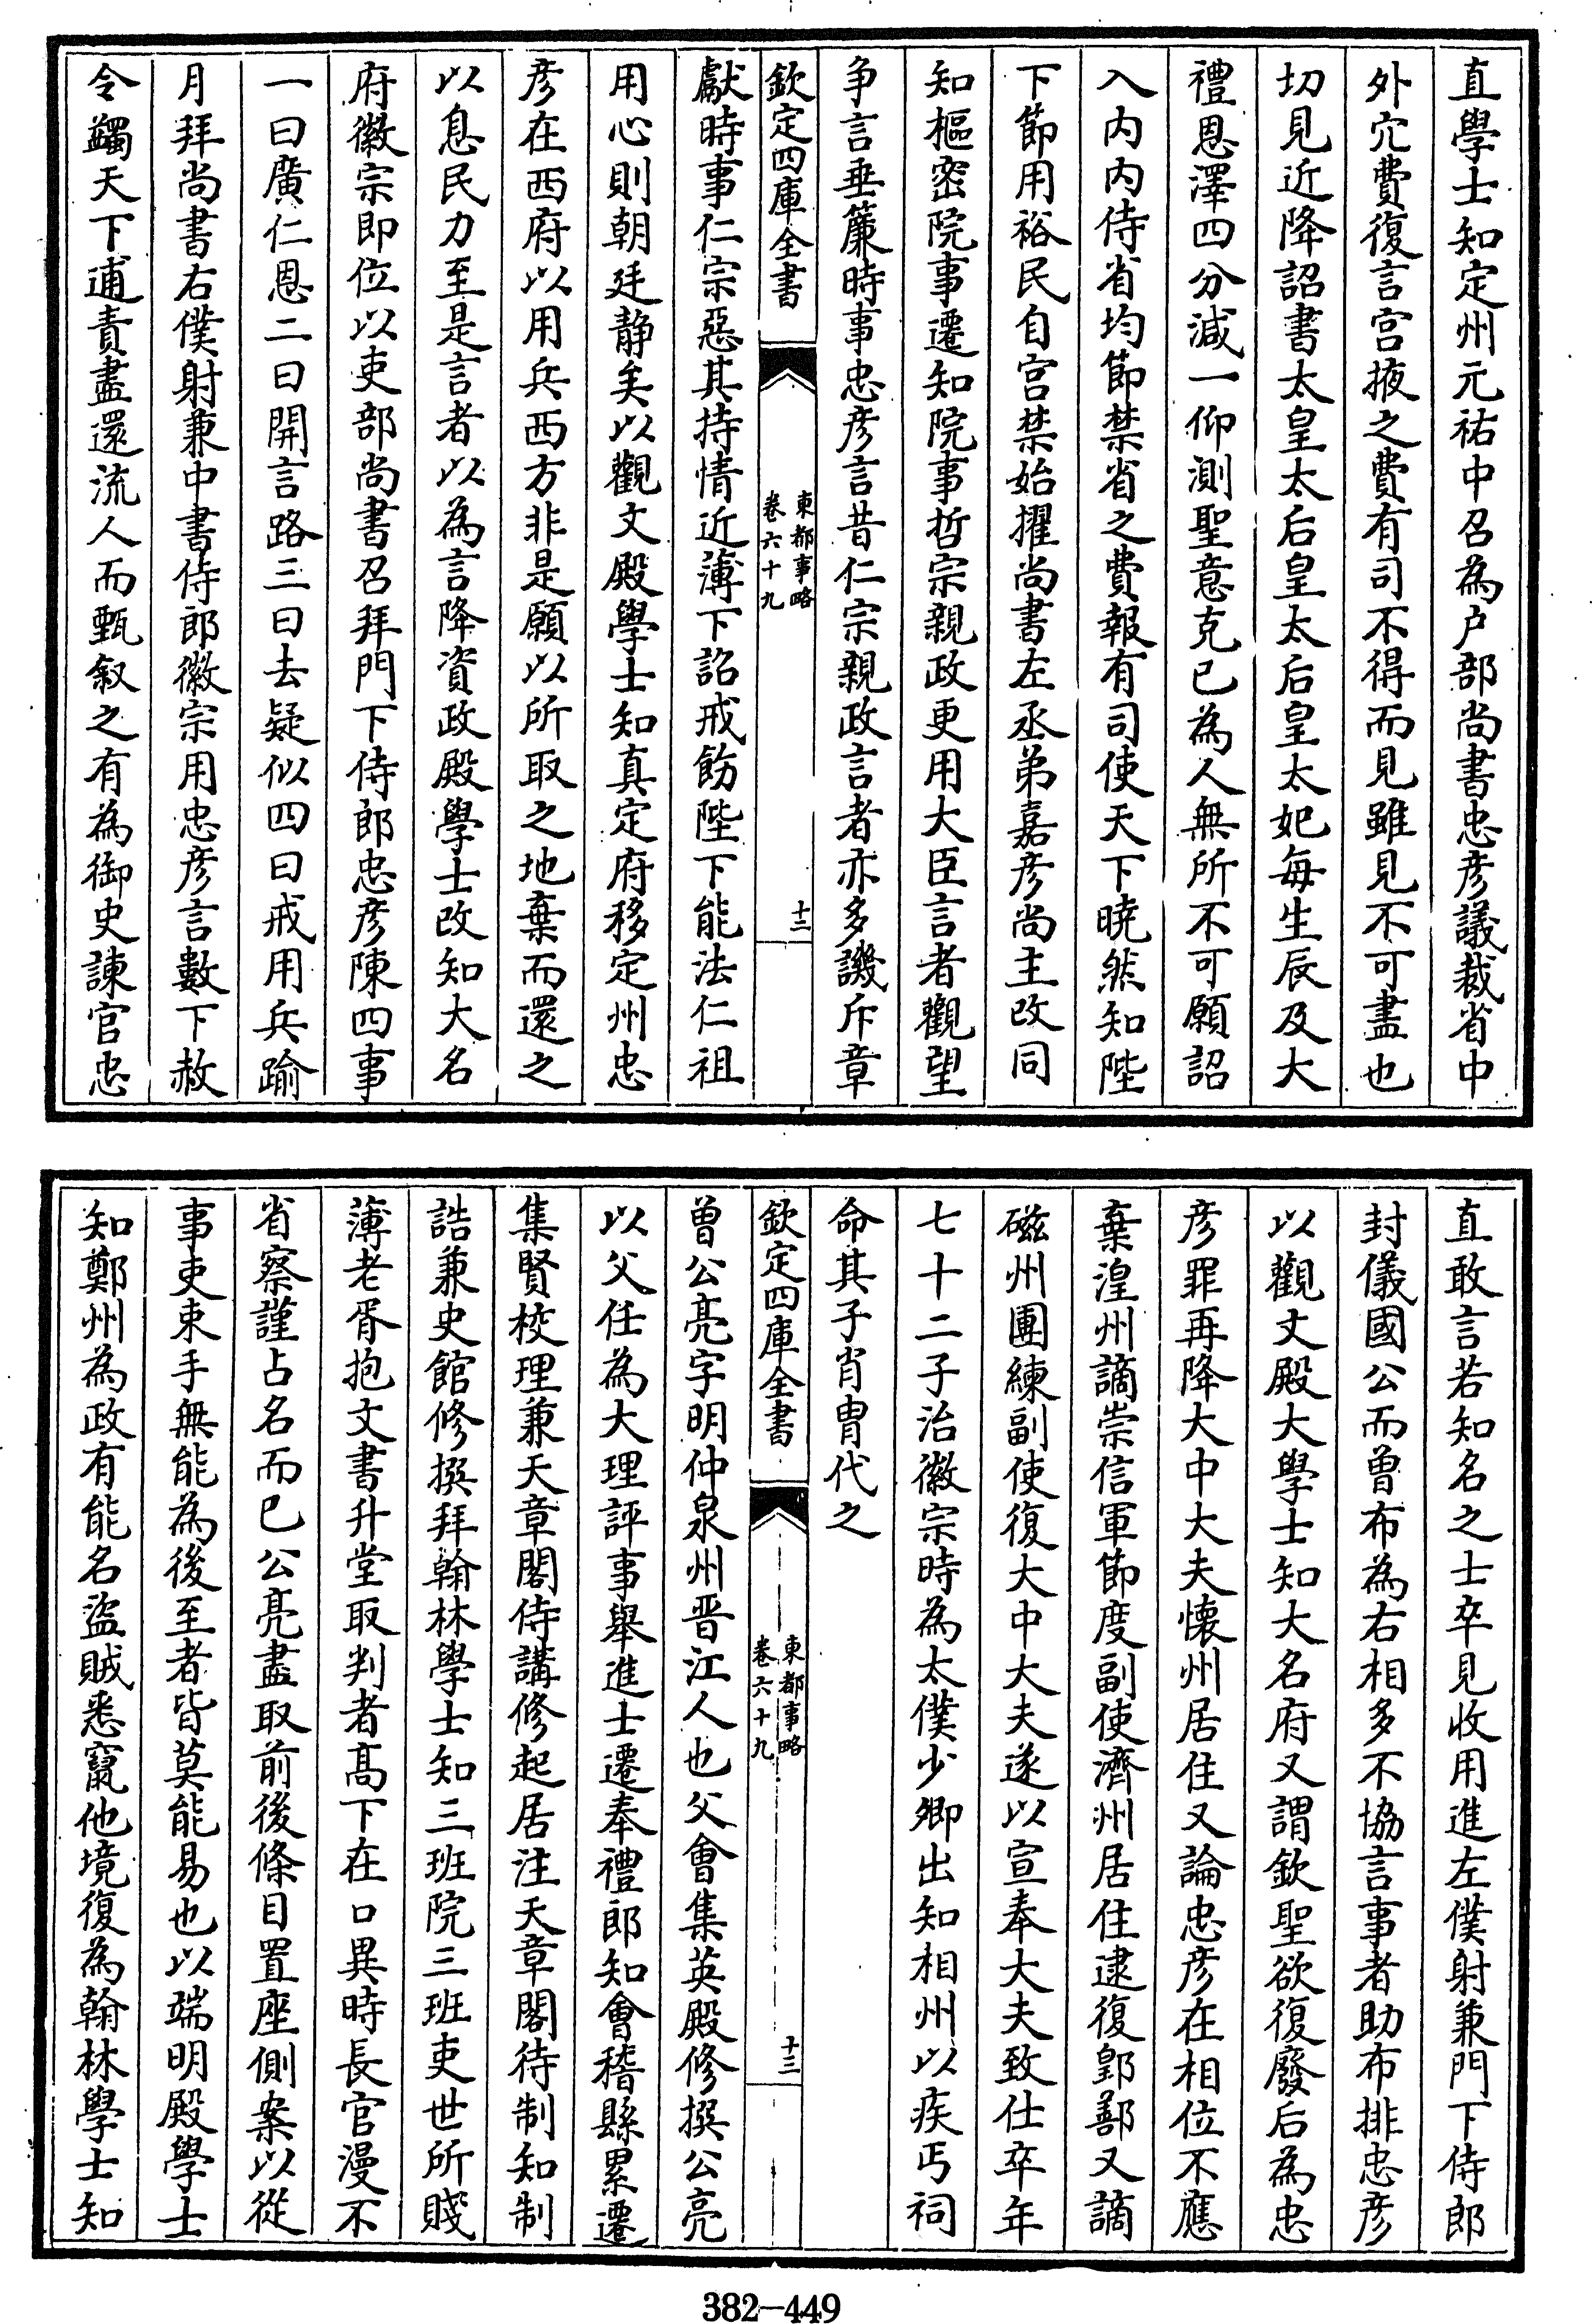 直學士知定州元祐中召為户部尚書忠彦議裁省中
外宂費復言宫掖之費有司不得而見雖見不可盡也
切見近降詔書太皇太后皇太后皇太妃每生辰及大
禮恩澤四分減一仰測聖意克已為人無所不可願詔
入内内侍省均節禁省之費報有司使天下曉然知陛
下節用裕民自宫禁始擢尚書左丞弟嘉彦尚主改同
知樞密院事遷知院事哲宗親政更用大臣言者觀望
争言垂簾時事忠彦言昔仁宗親政言者亦多譏斥章
欽定四庫全書
東都事略
卷六十九
十二
獻時事仁宗惡其持情近薄下詔戒飭陛下能法仁祖
用心則朝廷静矣以觀文殿學士知真定府移定州忠
彦在西府以用兵西方非是願以所取之地棄而還之
以息民力至是言者以為言降資政殿學士改知大名
府徽宗即位以吏部尚書召拜門下侍郎忠彦陳四事
一曰廣仁恩二曰開言路三曰去疑似四曰戒用兵踰
月拜尚書右僕射兼中書侍郎徽宗用忠彦言數下赦
令蠲天下逋責盡還流人而甄叙之有為御史諫官忠
直敢言若知名之士卒見收用進左僕射兼門下侍郎
封儀國公而曾布為右相多不協言事者助布排忠彦
以觀文殿大學士知大名府又謂欽聖欲復廢后為忠
彦罪再降大中大夫懷州居住又論忠彦在相位不應
棄湟州謫崇信軍節度副使濟州居住逮復鄯鄯又謫
磁州團練副使復大中大夫遂以宣奉大夫致仕卒年
七十二子治徽宗時為太僕少卿出知相州以疾丐祠
命其子肖胄代之
欽定四庫全書
東都事略
卷六十九
十三
曾公亮字明仲泉州晋江人也父會集英殿修撰公亮
以父任為大理評事舉進士遷奉禮郎知會稽縣累遷
集賢校理兼天章閣侍講修起居注天章閣待制知制
誥兼史館修撰拜翰林學士知三班院三班吏世所賤
薄老胥抱文書升堂取判者髙下在口異時長官漫不
省察謹占名而已公亮盡取前後條目置座側案以從
事吏束手無能為後至者皆莫能易也以端明殿學士
知鄭州為政有能名盜賊悉竄他境復為翰林學士知
382-449